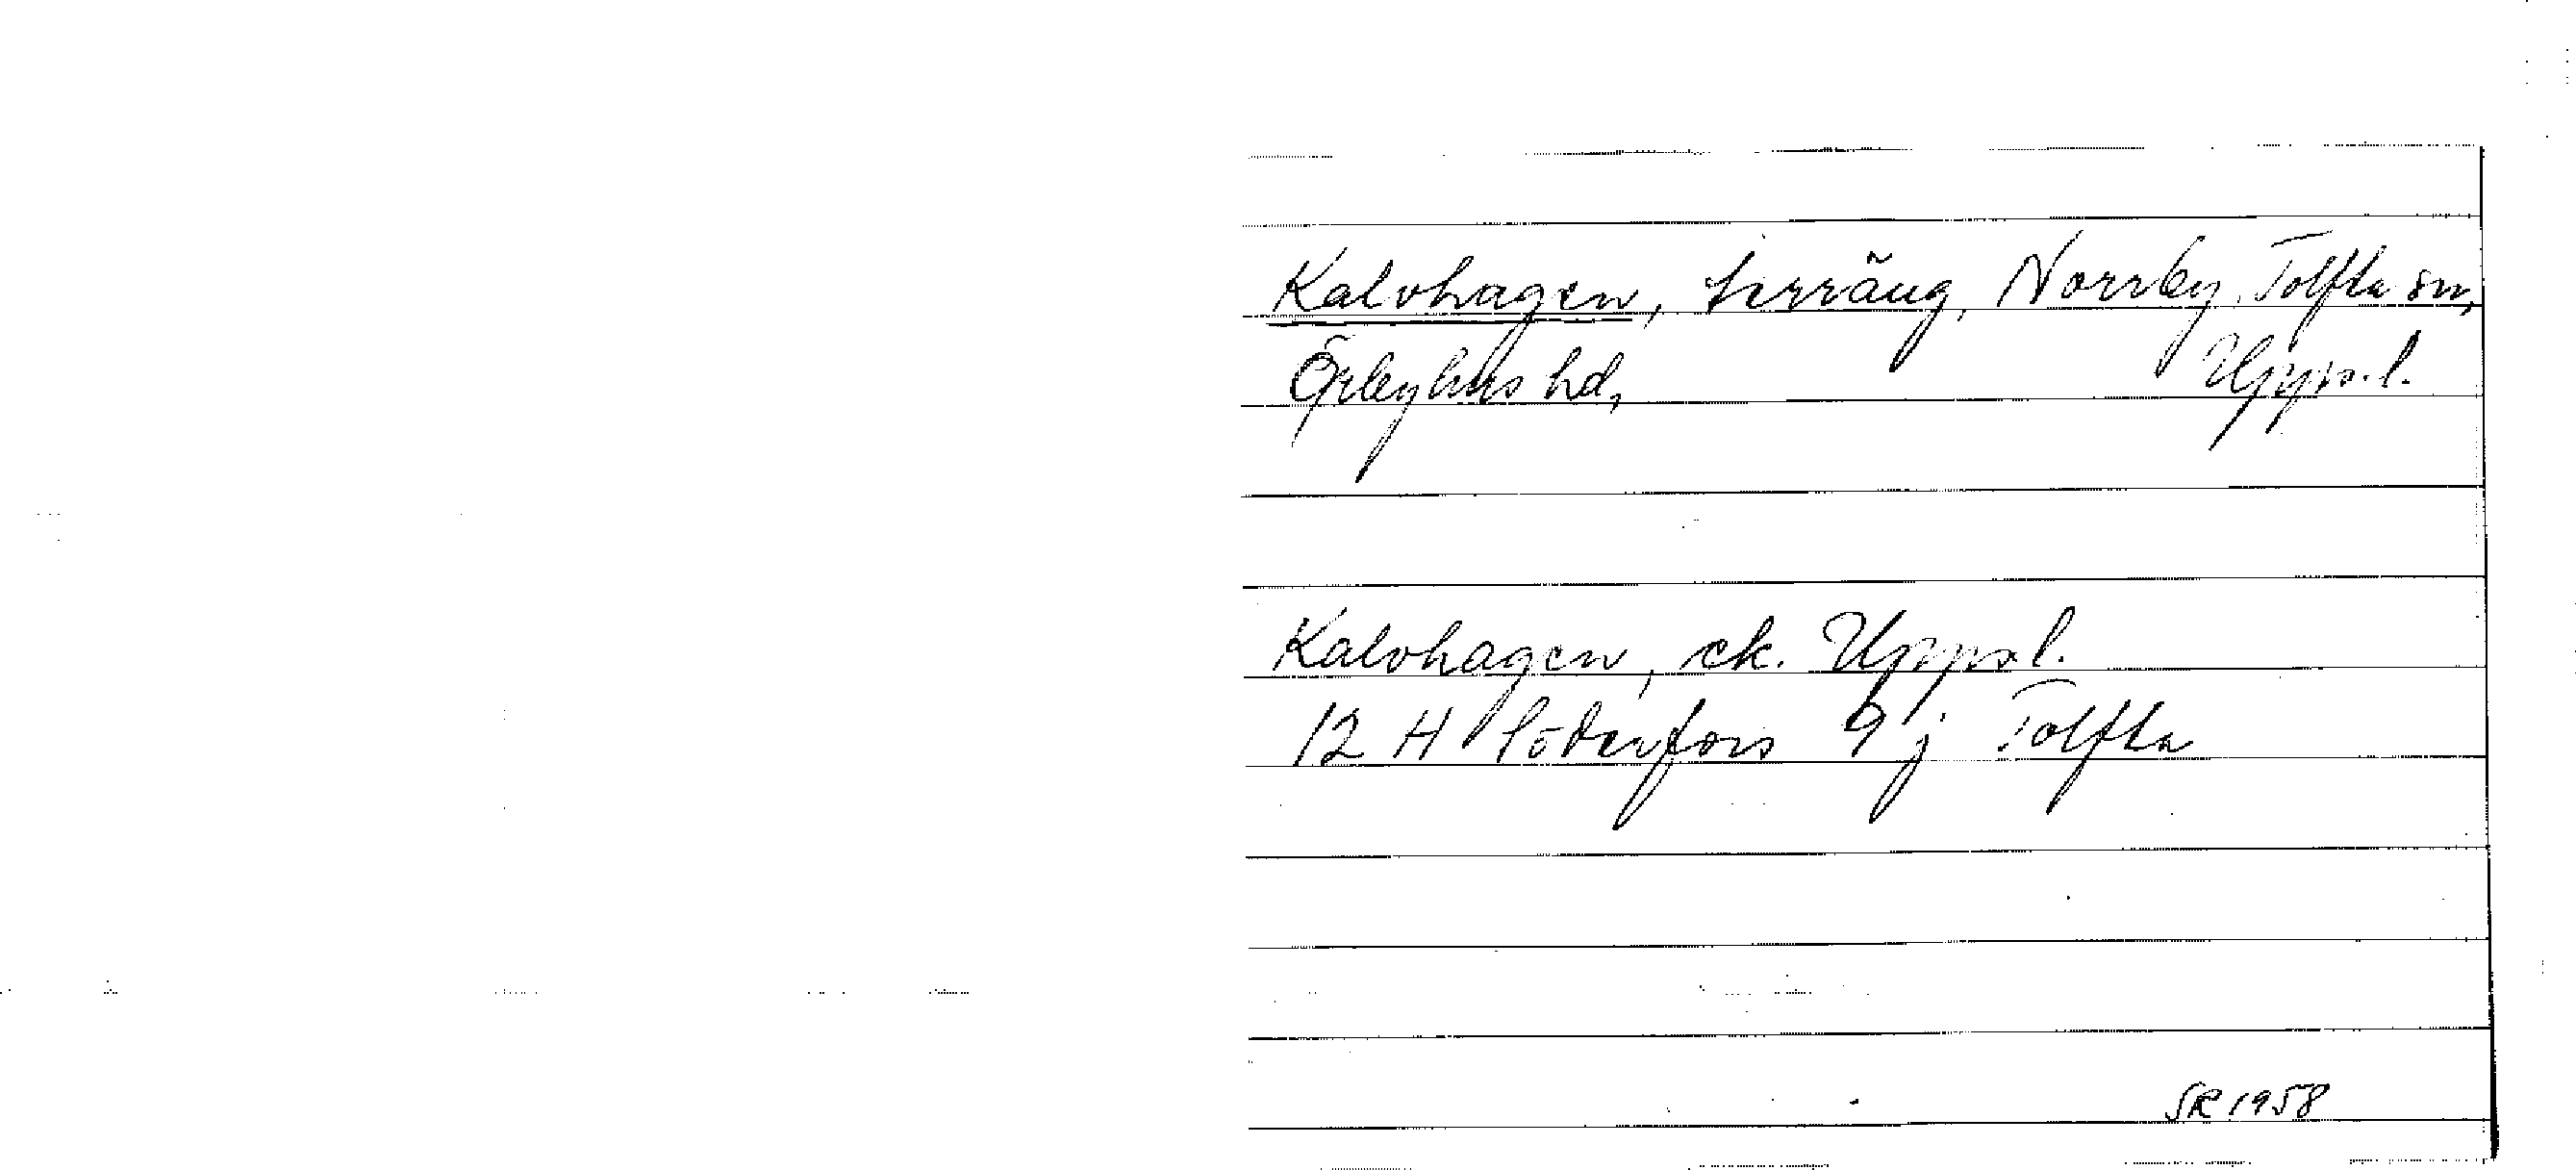 Kalvhagen, terräng, Norrby, Tolfta sn,
Örbyhus hd, Uppsl.
Kalvhagen, ek. Uppsl.
12 H Söderfors 9 j Tolfta
SR 1958